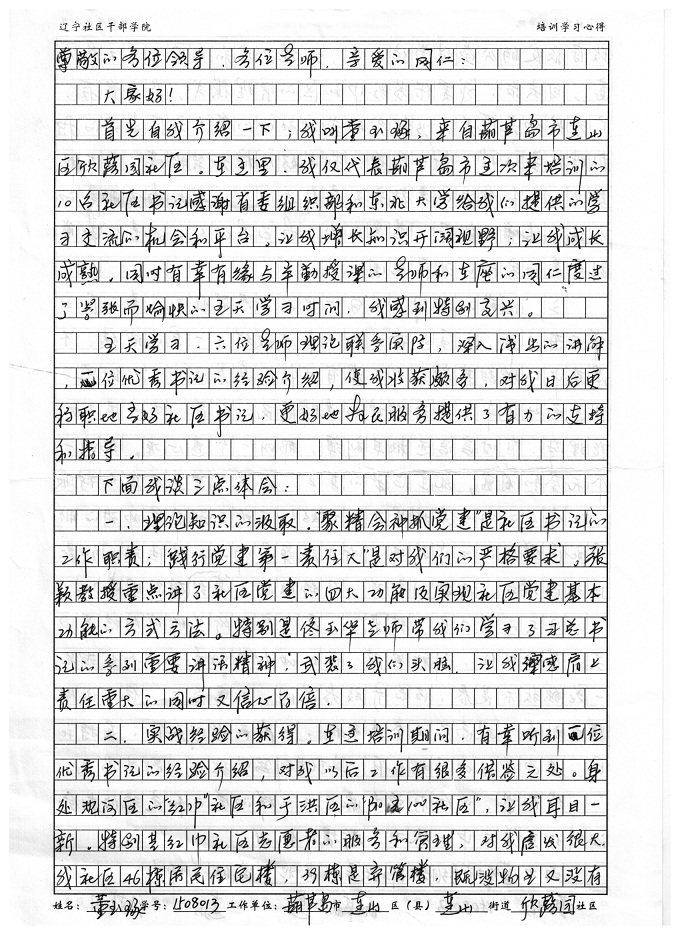 辽宁社区干部学院 培训学习心得
尊敬的各位领导、各位老师、亲爱的同仁:
大家好!
首先自我介绍一下:我叫董玉，来自葫芦岛市连山
区欣园社区。在这里，我仅代表葫芦岛市这次来培训的
10名社区书记感谢省委组织部和东北大学给我们提供的学
习交流的机会和平台。让我增长知识开阔视野;让我成长
成熟。同时有幸有缘与辛勤授课的老师和在座的同仁度过
了紧张而愉快的五天学习时间，我感到特别高兴。
五天学习，六位老师理论联系实际，深入浅出的讲解
，位优秀书记的经验介绍，使我收获颇多，对我日后更
称职地当好社区书记，更好地为民服务提供了有力的支持
和指导。
下面我谈三点体会:
一、理论知识的汲取。"聚精会神抓党建"是社区书记的
工作职责;践行党建第一责任人"是对我们的严格要求。张
颖教授重点讲了社区党建的四大功能及实现社区党建基本
功能的方式方法。特别是佟玉华老师带我们学习了习总书
记的系列重要讲话精神，武装了我们头脑，让我深感肩上
责任重大的同时又信心百倍。
二、实战经验的获得。在这培训期间，有幸听到位
优秀书记的经验介绍，对我以后工作有很多借鉴之处。身
处沈河区的"红巾"社区和于洪区的"社区"，让我耳目一
新。特别其红巾社区志愿者的服务和管理，对我启发很大
我社区46栋居民住宅楼，39栋是弃管楼，既没物业又没有
姓名: 董玉 学号: 1508013 工作单位: 葫芦岛市 连山 区(县) 连山 街道 欣园社区